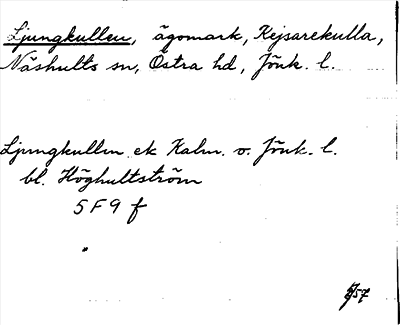 Ljungkullen, ägomark, Kejsarekulla,
Näshults sn, Östra hd, Jönk. l.
Ljungkullen ek Kalm. o. Jönk. l.
bl. Höghultström
5 F 9 f
57